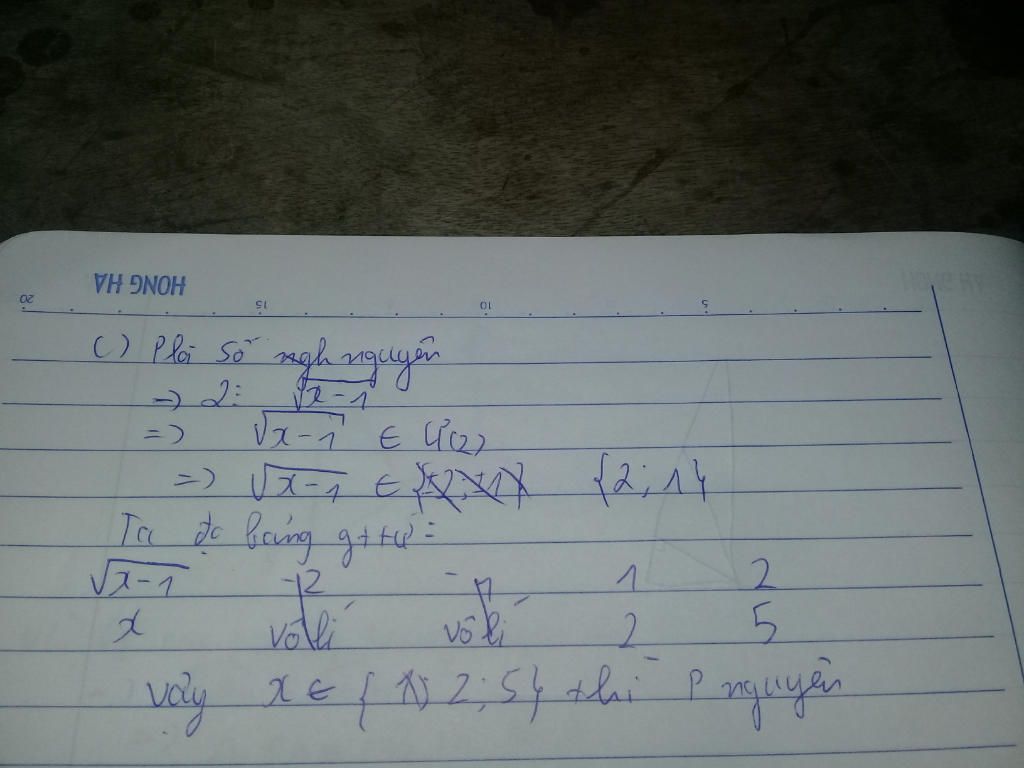 HONG HA
20 15 10 5
C) P là số nguyên
→ 2 ⋮ √x-1
=> √x-1 ∈ Ư(2)
=> √x-1 ∈ {±2; ±1} {2; 1}
Ta đc bảng gttư:
√x-1 -2 -1 1 2
x vô lí vô lí 2 5
Vậy x ∈ { 2; 5} thì P nguyên